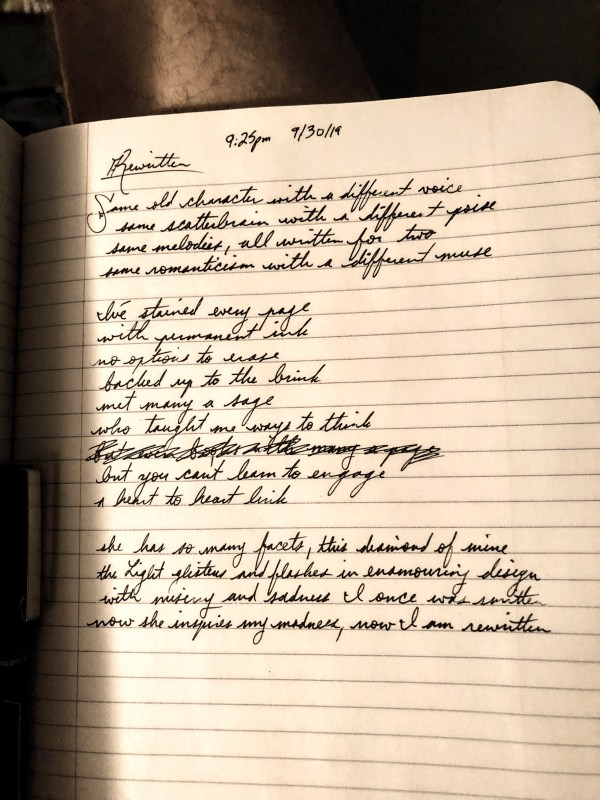 9:25pm 9/30/19
Rewritten
Same old character with a different voice
same scatterbrain with a different poise
same melodies, all written for two
same romanticism with a different muse
I've stained every page
with permanent ink
no options to erase
backed up to the brink
met many a sage
who taught me ways to think
but you can't learn to engage
a heart to heart link
she has so many facets, this diamond of mine
the Light glistens and flashes in enamouring design
with misery and sadness I once was smitten
now she inspires my madness, now I am rewritten